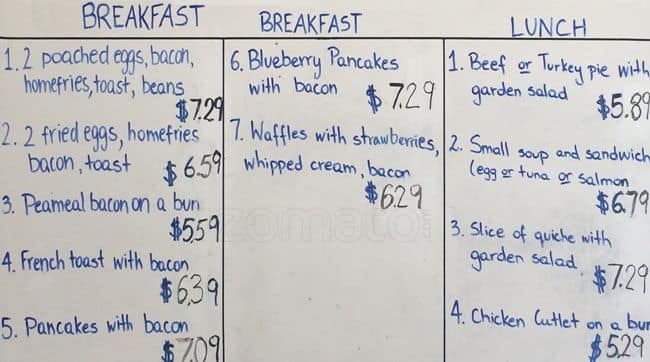 BREAKFAST
1. 2 poached eggs, bacon,
homefries, toast, beans
$7.29
2. 2 fried eggs, homefries
bacon, toast $6.59
3. Peameal bacon on a bun
$5.59
4. French toast with bacon
$6.39
5. Pancakes with bacon
$7.09
BREAKFAST
6. Blueberry Pancakes
with bacon $7.29
7. Waffles with strawberries,
whipped cream, bacon
$6.29
zomato
LUNCH
1. Beef or Turkey pie with
garden salad $5.89
2. Small soup and sandwich
(egg or tuna or salmon
$6.79
3. Slice of quiche with
garden salad. $7.29
4. Chicken Cutlet on a bun
$5.29